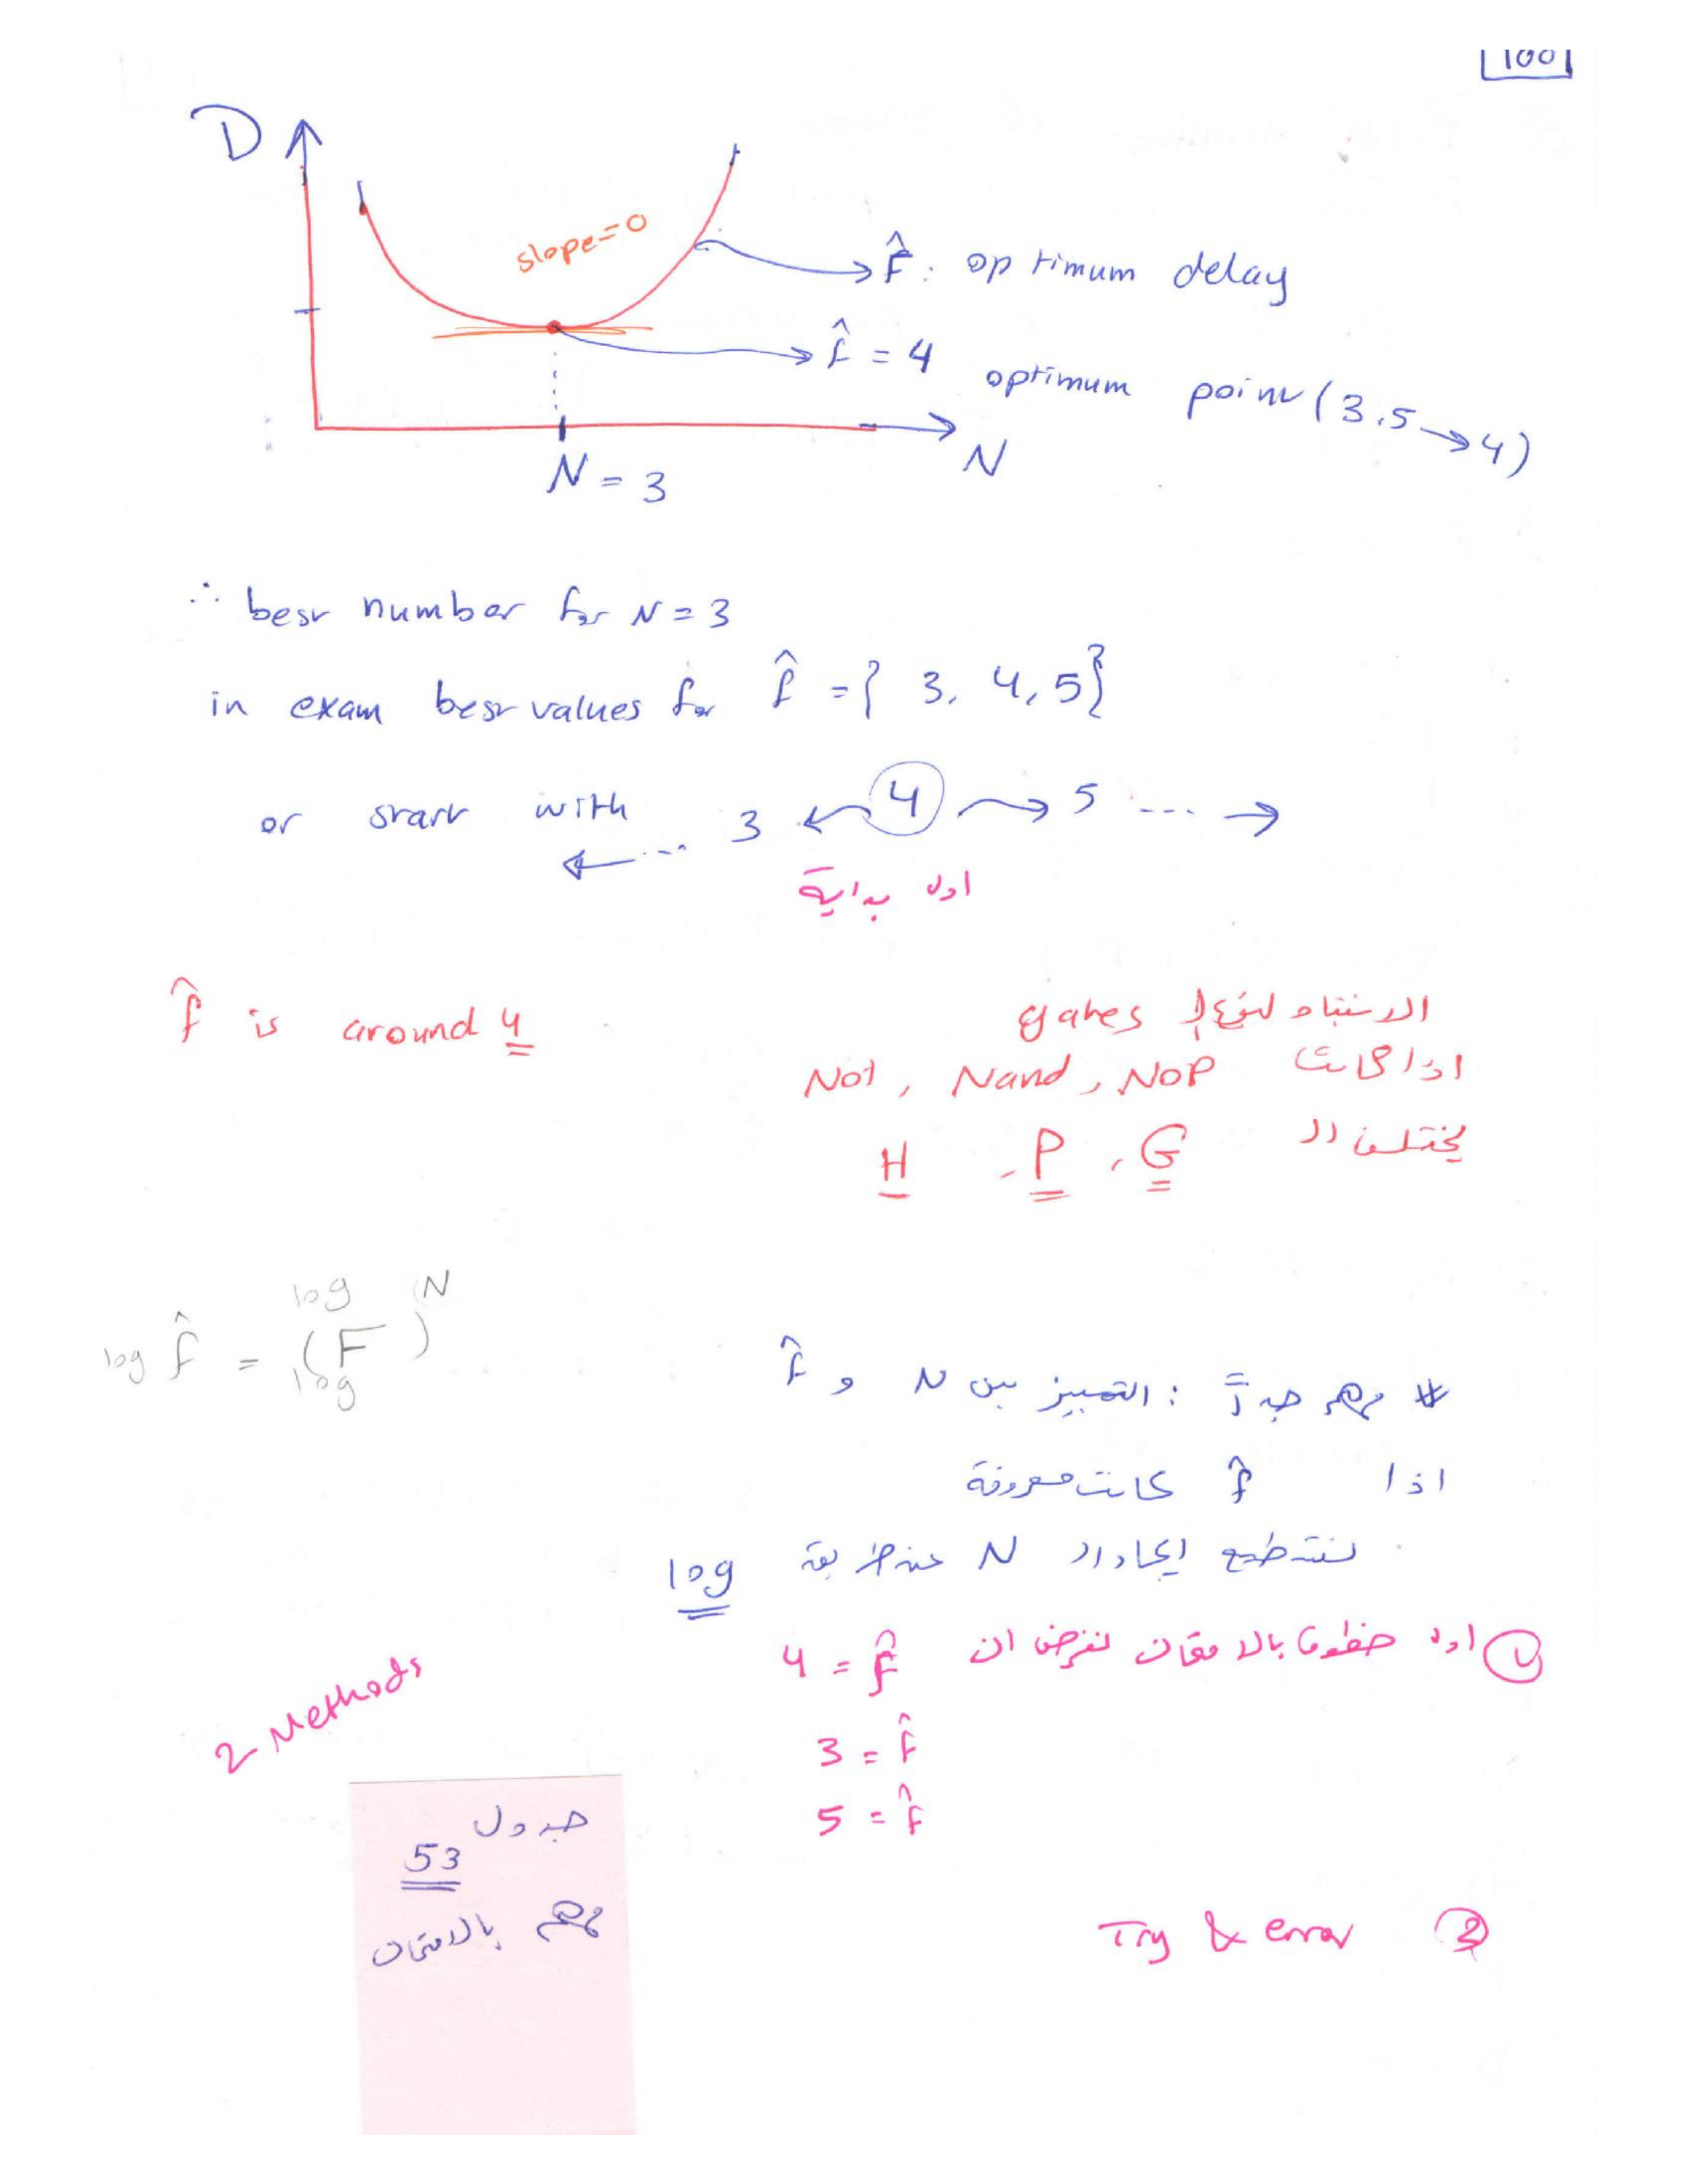 100
D
slope=0
F̂: optimum delay
f̂ = 4 optimum point (3.5 → 4)
N
N = 3
∴ best number for N = 3
in exam best values for f̂ = { 3, 4, 5}
or start with ← ... 3 ← 4 → 5 ... →
اول بداية
f̂ is around 4
الانتباه لنوع ال gates
اذا كانت Not, Nand, NOR
يختلف ال G, P, H
log N
log f̂ = (F)
log
# مهم جداً : التمييز بين N و f̂
اذا f̂ كانت معروفة
نستطيع ايجاد ال N عن طريقة log
① اول خطوة بالامتحان نفرض ان f̂ = 4
3 = f̂
5 = f̂
2 Methods
جدول
53
مهم بالامتحان
② Try & error